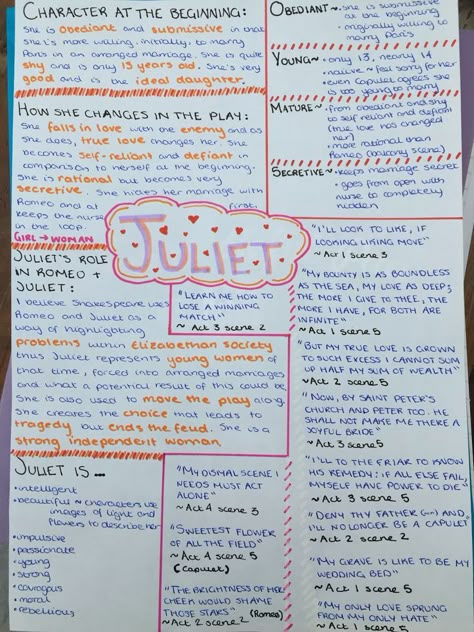 CHARACTER AT THE BEGINNING:
She is obediant and submissive in that
she's more willing, initially, to marry
Paris in an arranged marriage. She is quite
shy and is only 13 years old. She's very
good and is the ideal daughter.
HOW SHE CHANGES IN THE PLAY:
She falls in love with the enemy and as
she does, true love changes her. She
becomes self-reliant and defiant in
comparison to herself at the beginning.
She is rational but becomes very
secretive. She hides her marriage with
Romeo and at first,
keeps the nurse
in the loop.
GIRL → WOMAN
JULIET'S ROLE
IN ROMEO +
JULIET:
I believe Shakespeare uses
Romeo and Juliet as a
way of highlighting
problems within Elizabethan society
thus Juliet represents young women of
that time, forced into arranged marriages
and what a potential result of this could be.
She is also used to move the play along.
She creates the choice that leads to
tragedy but ends the feud. She is a
strong independent woman.
JULIET IS...
•intelligent
•beautiful ~ characters use
images of light and
flowers to describe her
•impulsive
•passionate
•young
•strong
•couragous
•moral
•rebellious
JULIET
OBEDIANT ~ • she is submissive
at the beginning
• originally willing to
marry Paris
YOUNG ~ • only 13, nearly 14
• naive ~ feel sorry for her
• even Capulet agrees she
is too young to marry
MATURE ~ • from obediant and shy
to self reliant and defiant
(true love has changed
her)
• more rational than
Romeo (balcony scene)
SECRETIVE ~ • keeps marriage secret
• goes from open with
nurse to completely
hidden
"LEARN ME HOW TO
LOSE A WINNING
MATCH"
~ Act 3 scene 2
"MY DISMAL SCENE I
NEEDS MUST ACT
ALONE"
~ Act 4 scene 3
"SWEETEST FLOWER
OF ALL THE FIELD"
~ Act 4 scene 5
(Capulet)
"THE BRIGHTNESS OF HER
CHEEK WOULD SHAME
THOSE STARS" (Romeo)
~ Act 2 scene 2
"I'LL LOOK TO LIKE, IF
LOOKING LIKING MOVE"
~ Act 1 scene 3
"MY BOUNTY IS AS BOUNDLESS
AS THE SEA, MY LOVE AS DEEP;
THE MORE I GIVE TO THEE, THE
MORE I HAVE, FOR BOTH ARE
INFINITE"
~ Act 1 scene 5
"BUT MY TRUE LOVE IS GROWN
TO SUCH EXCESS I CANNOT SUM
UP HALF MY SUM OF WEALTH"
~ Act 2 scene 5
"NOW, BY SAINT PETER'S
CHURCH AND PETER TOO. HE
SHALL NOT MAKE ME THERE A
JOYFUL BRIDE"
Act 3 scene 5
"I'LL TO THE FRIAR TO KNOW
HIS REMEDY: IF ALL ELSE FAIL,
MYSELF HAVE POWER TO DIE"
~ Act 3 scene 5
"DENY THY FATHER AND,
I'LL NO LONGER BE A CAPULET
~ Act 2 scene 2
"MY GRAVE IS LIKE TO BE MY
WEDDING BED"
~ Act 1 scene 5
"MY ONLY LOVE SPRUNG
FROM MY ONLY HATE"
~ Act 1 scene 5